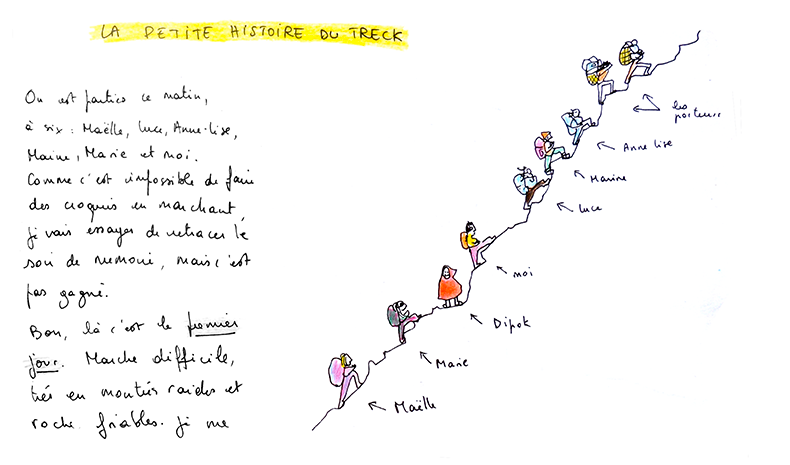 LA PETITE HISTOIRE DU TRECK
On est parties ce matin,
à six : Maëlle, Luce, Anne-lise,
Marine, Marie et moi.
Comme c'est impossible de faire
des croquis en marchant,
je vais essayer de retracer le
soir de memoire, mais c'est
pas gagné.
Bon, là c'est le premier
jour. Marche difficile,
très en montées raides et
roche friables. Je me
les
porteurs
Anne lise
Marine
Luce
moi
Dipok
Marie
Maëlle